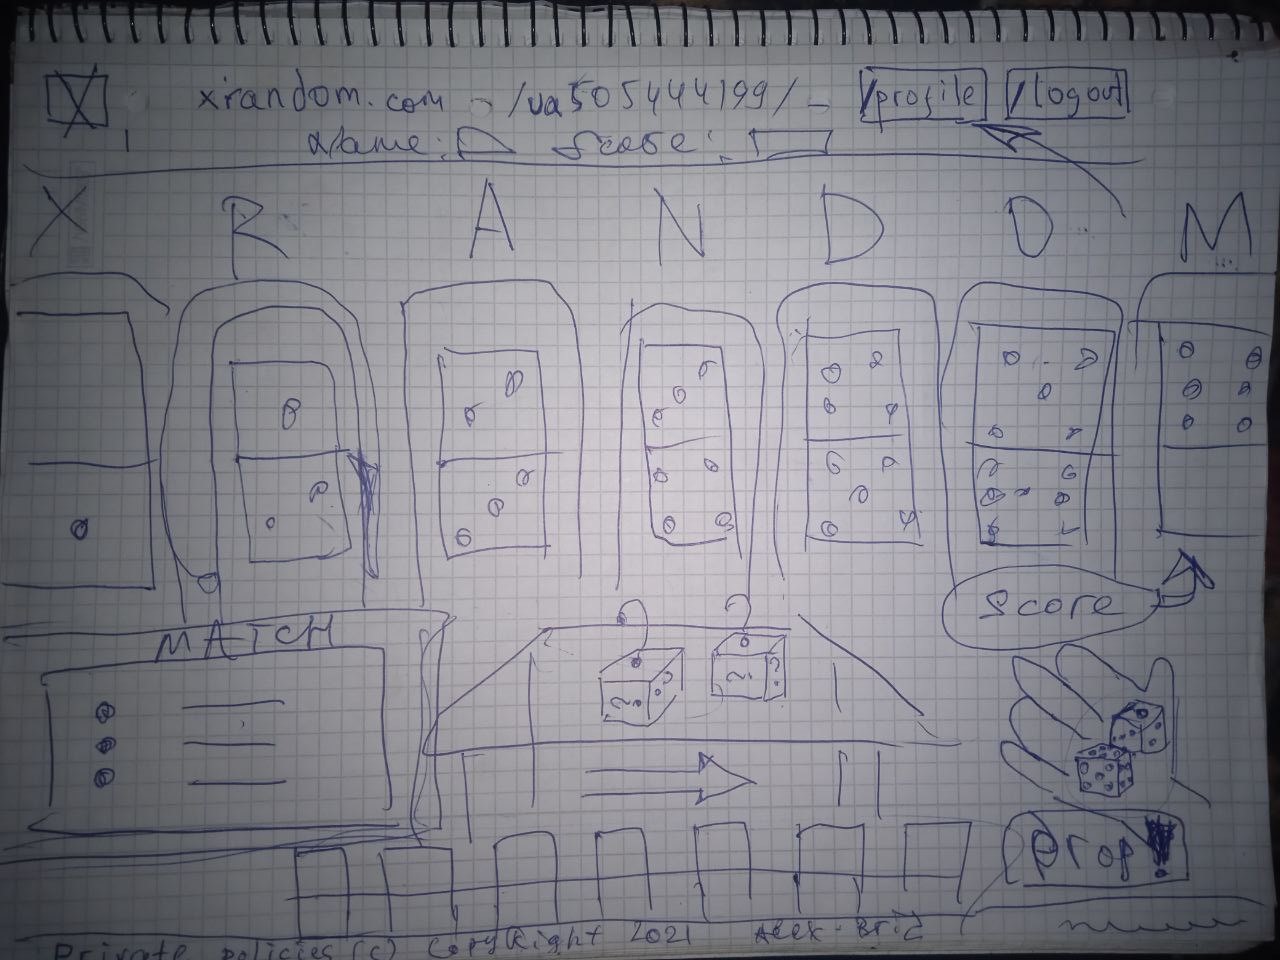 X xrandom.com - /ua505444199/ - /profile /logout
Name: Score:
X R A N D O M
Score
MATCH
? ? ? ?
Drop!
Private policies (c) CopyRight 2021 Alex-Bric